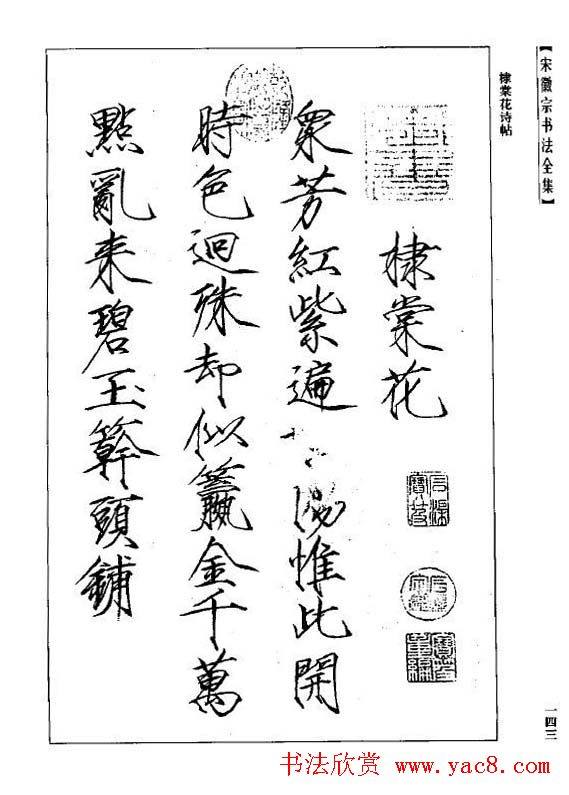 【宋徽宗书法全集】
棣棠花诗帖
棣棠花
石渠寶笈
寶笈重編
衆芳紅紫遍惟此開
時色迥殊却似籯金千萬
點亂来碧玉簳頭鋪
一四三
书法欣赏 www.yac8.com